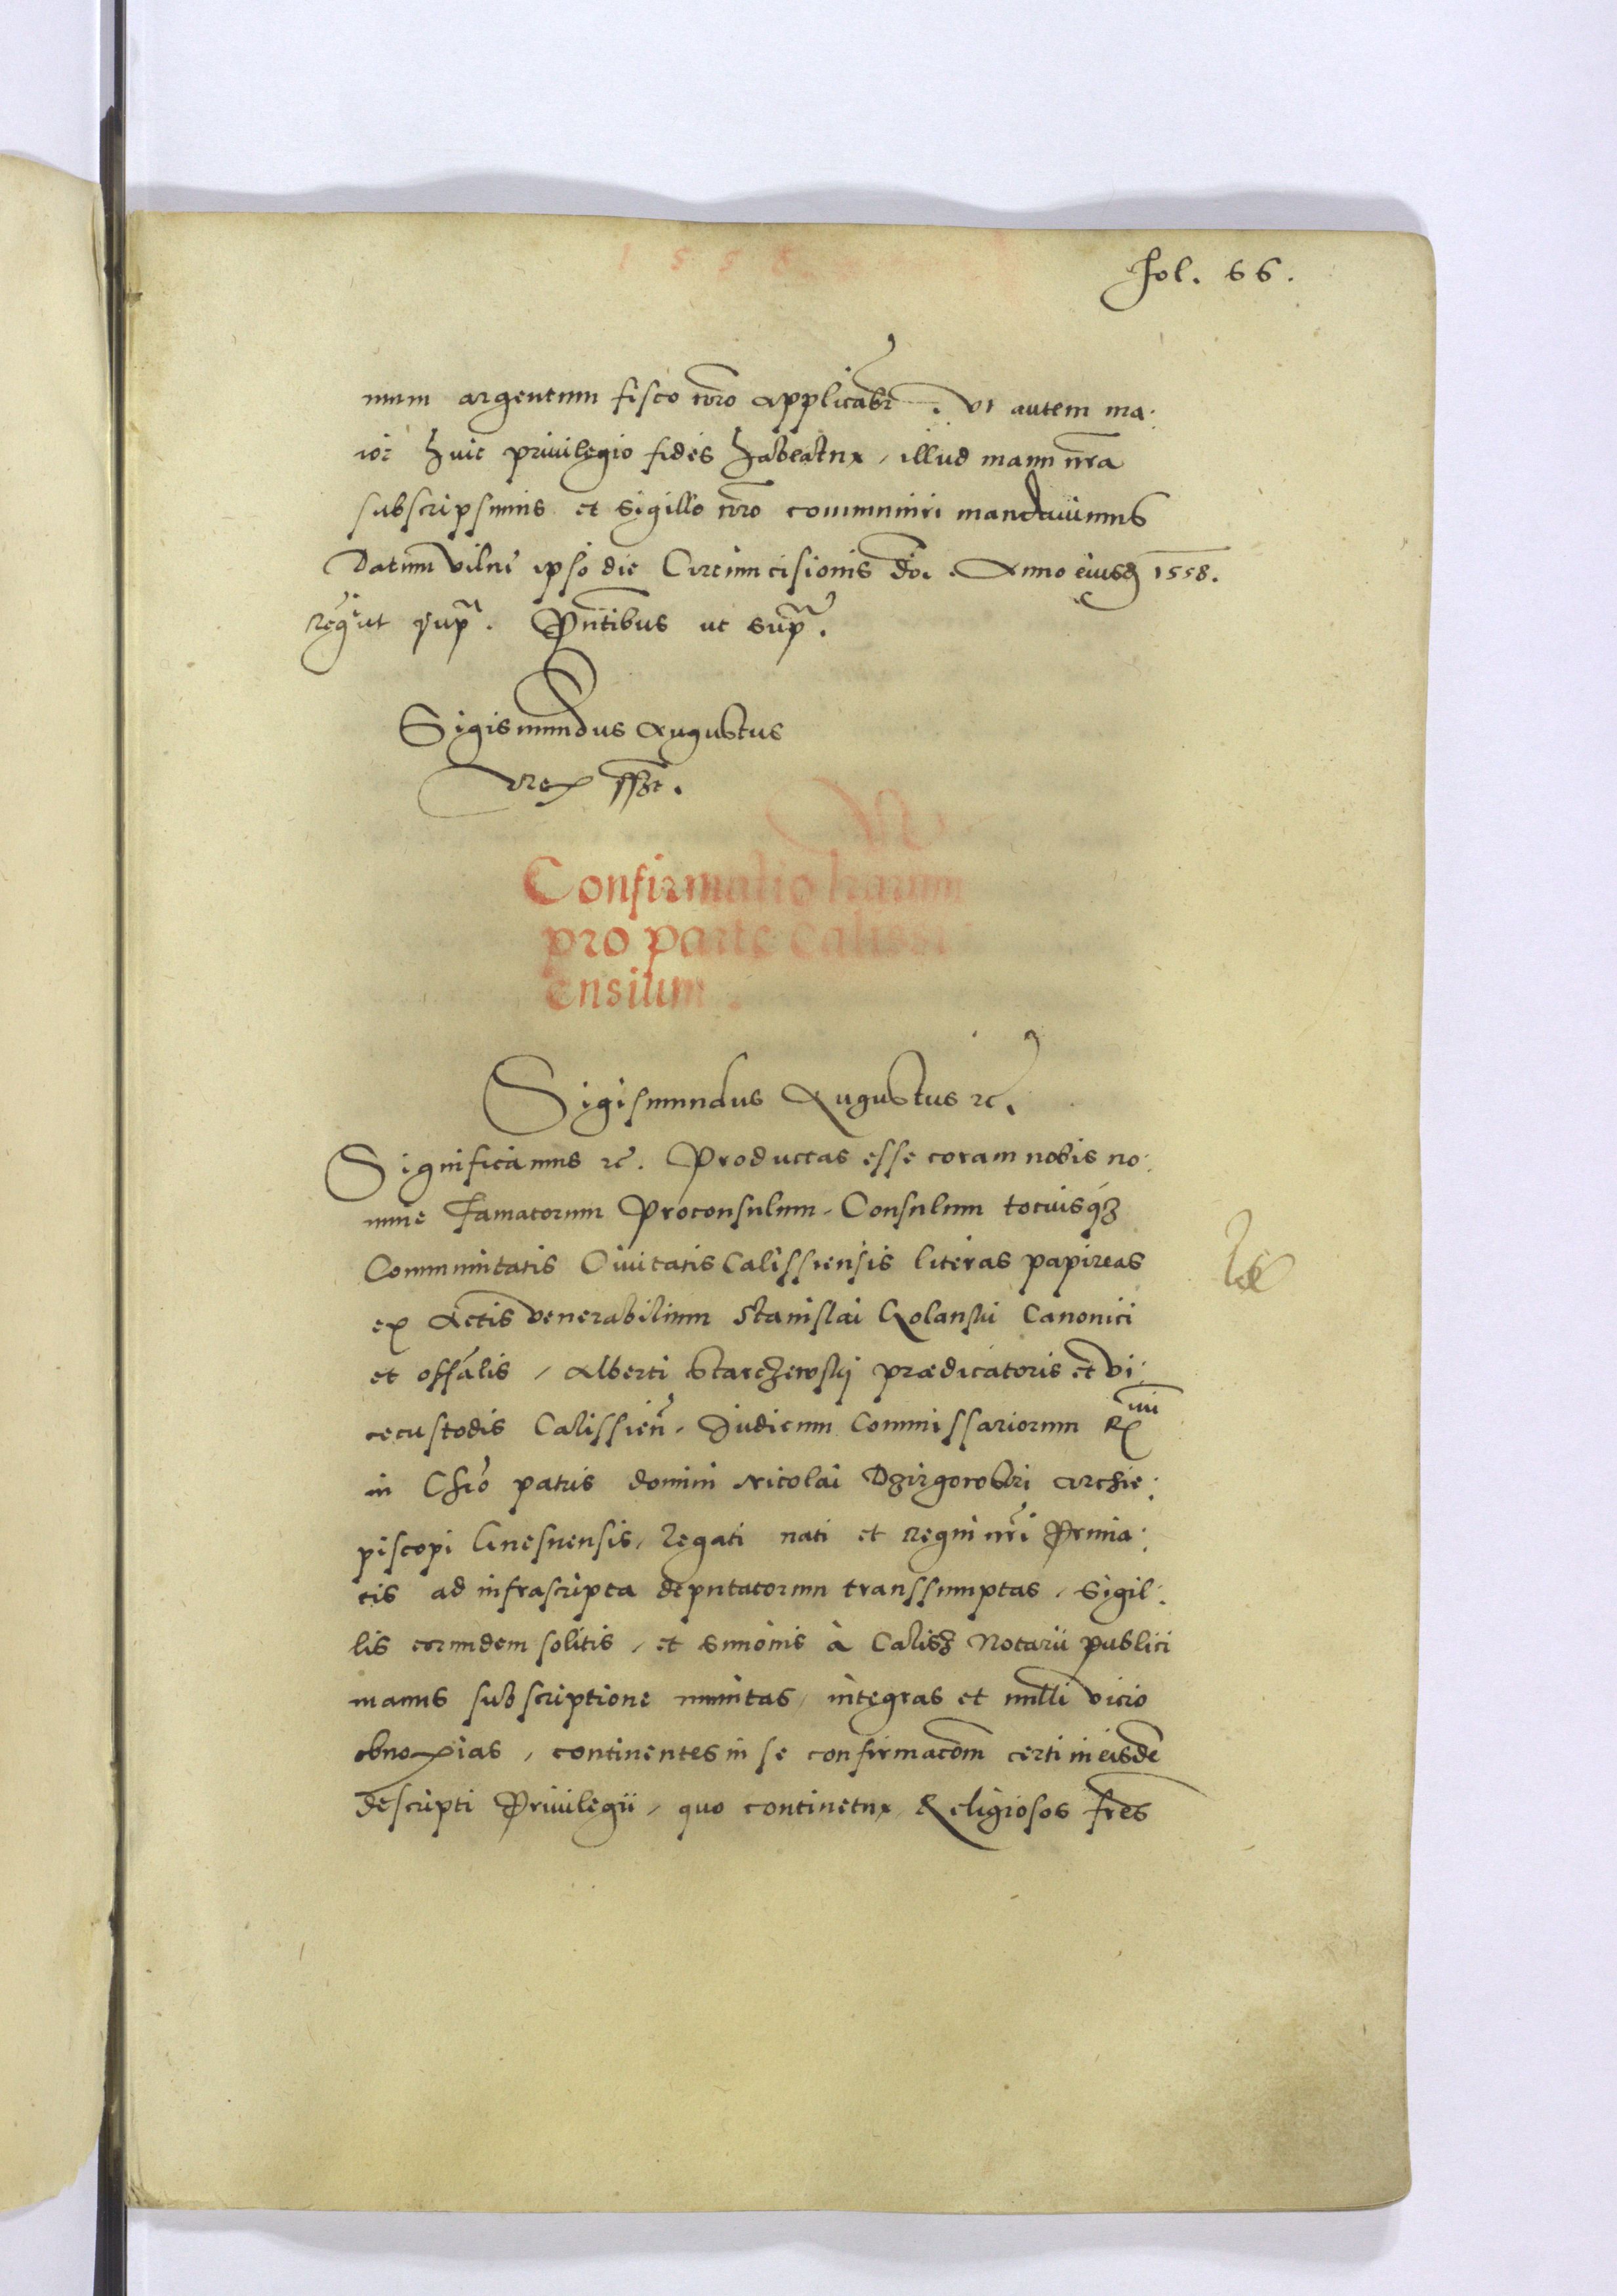 1558
Fol. 66.
num argentum fisco nro applicabr. Ut autem ma:
ior huic priuilegio fides habeatur, illud manu nra
subscripsimus et sigillo nro communiri mandauimus
Datum Vilne ipso die Circumcisionis Doi. Anno eiusd 1558.
Regni ut supra. Pntibus ut supra.
Sigismundus Augustus
Rex sszt.
Confirmatio harum
pro parte calissi
ensium.
Sigismundus Augustus zc.
Significamus zc. Productas esse coram nobis no:
mine Famatorum Proconsulum, Consulum totiusqz
Communitatis Ciuitatis Calissiensis literas papireas
ex Actis venerabilium Stanislai Golanski Canonici
et offalis, Alberti Starczewskij praedicatoris et vi:
cecustodis Calissien, Judicum Commissariorum Rmi
in Chro patris domini Nicolai Dzirgowski Archie:
piscopi Gnesnensis, Legati nati et Regni nri Prima:
tis ad infrascripta deputatorum transsumptas, Sigil:
lis eorundem solitis, et Simonis à Calisz Notarii publici
manus subscriptione munitas, integras et nulli vicio
obnoxias, continentes in se confirmacom certi in eisde
descripti Priuilegii, quo continetur Religiosos fres